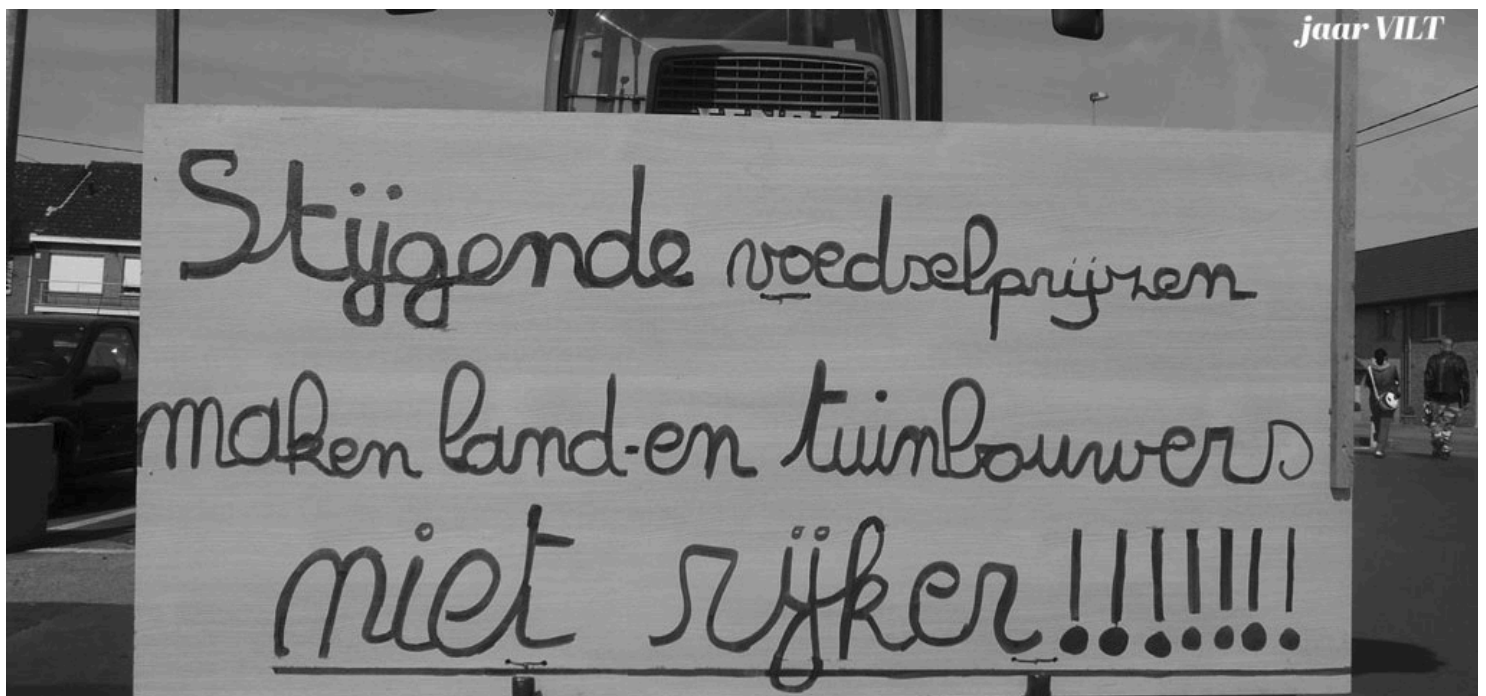 jaar VILT
FENDT
Stijgende voedselprijzen
maken land-en tuinbouwers
niet rijker!!!!!!!